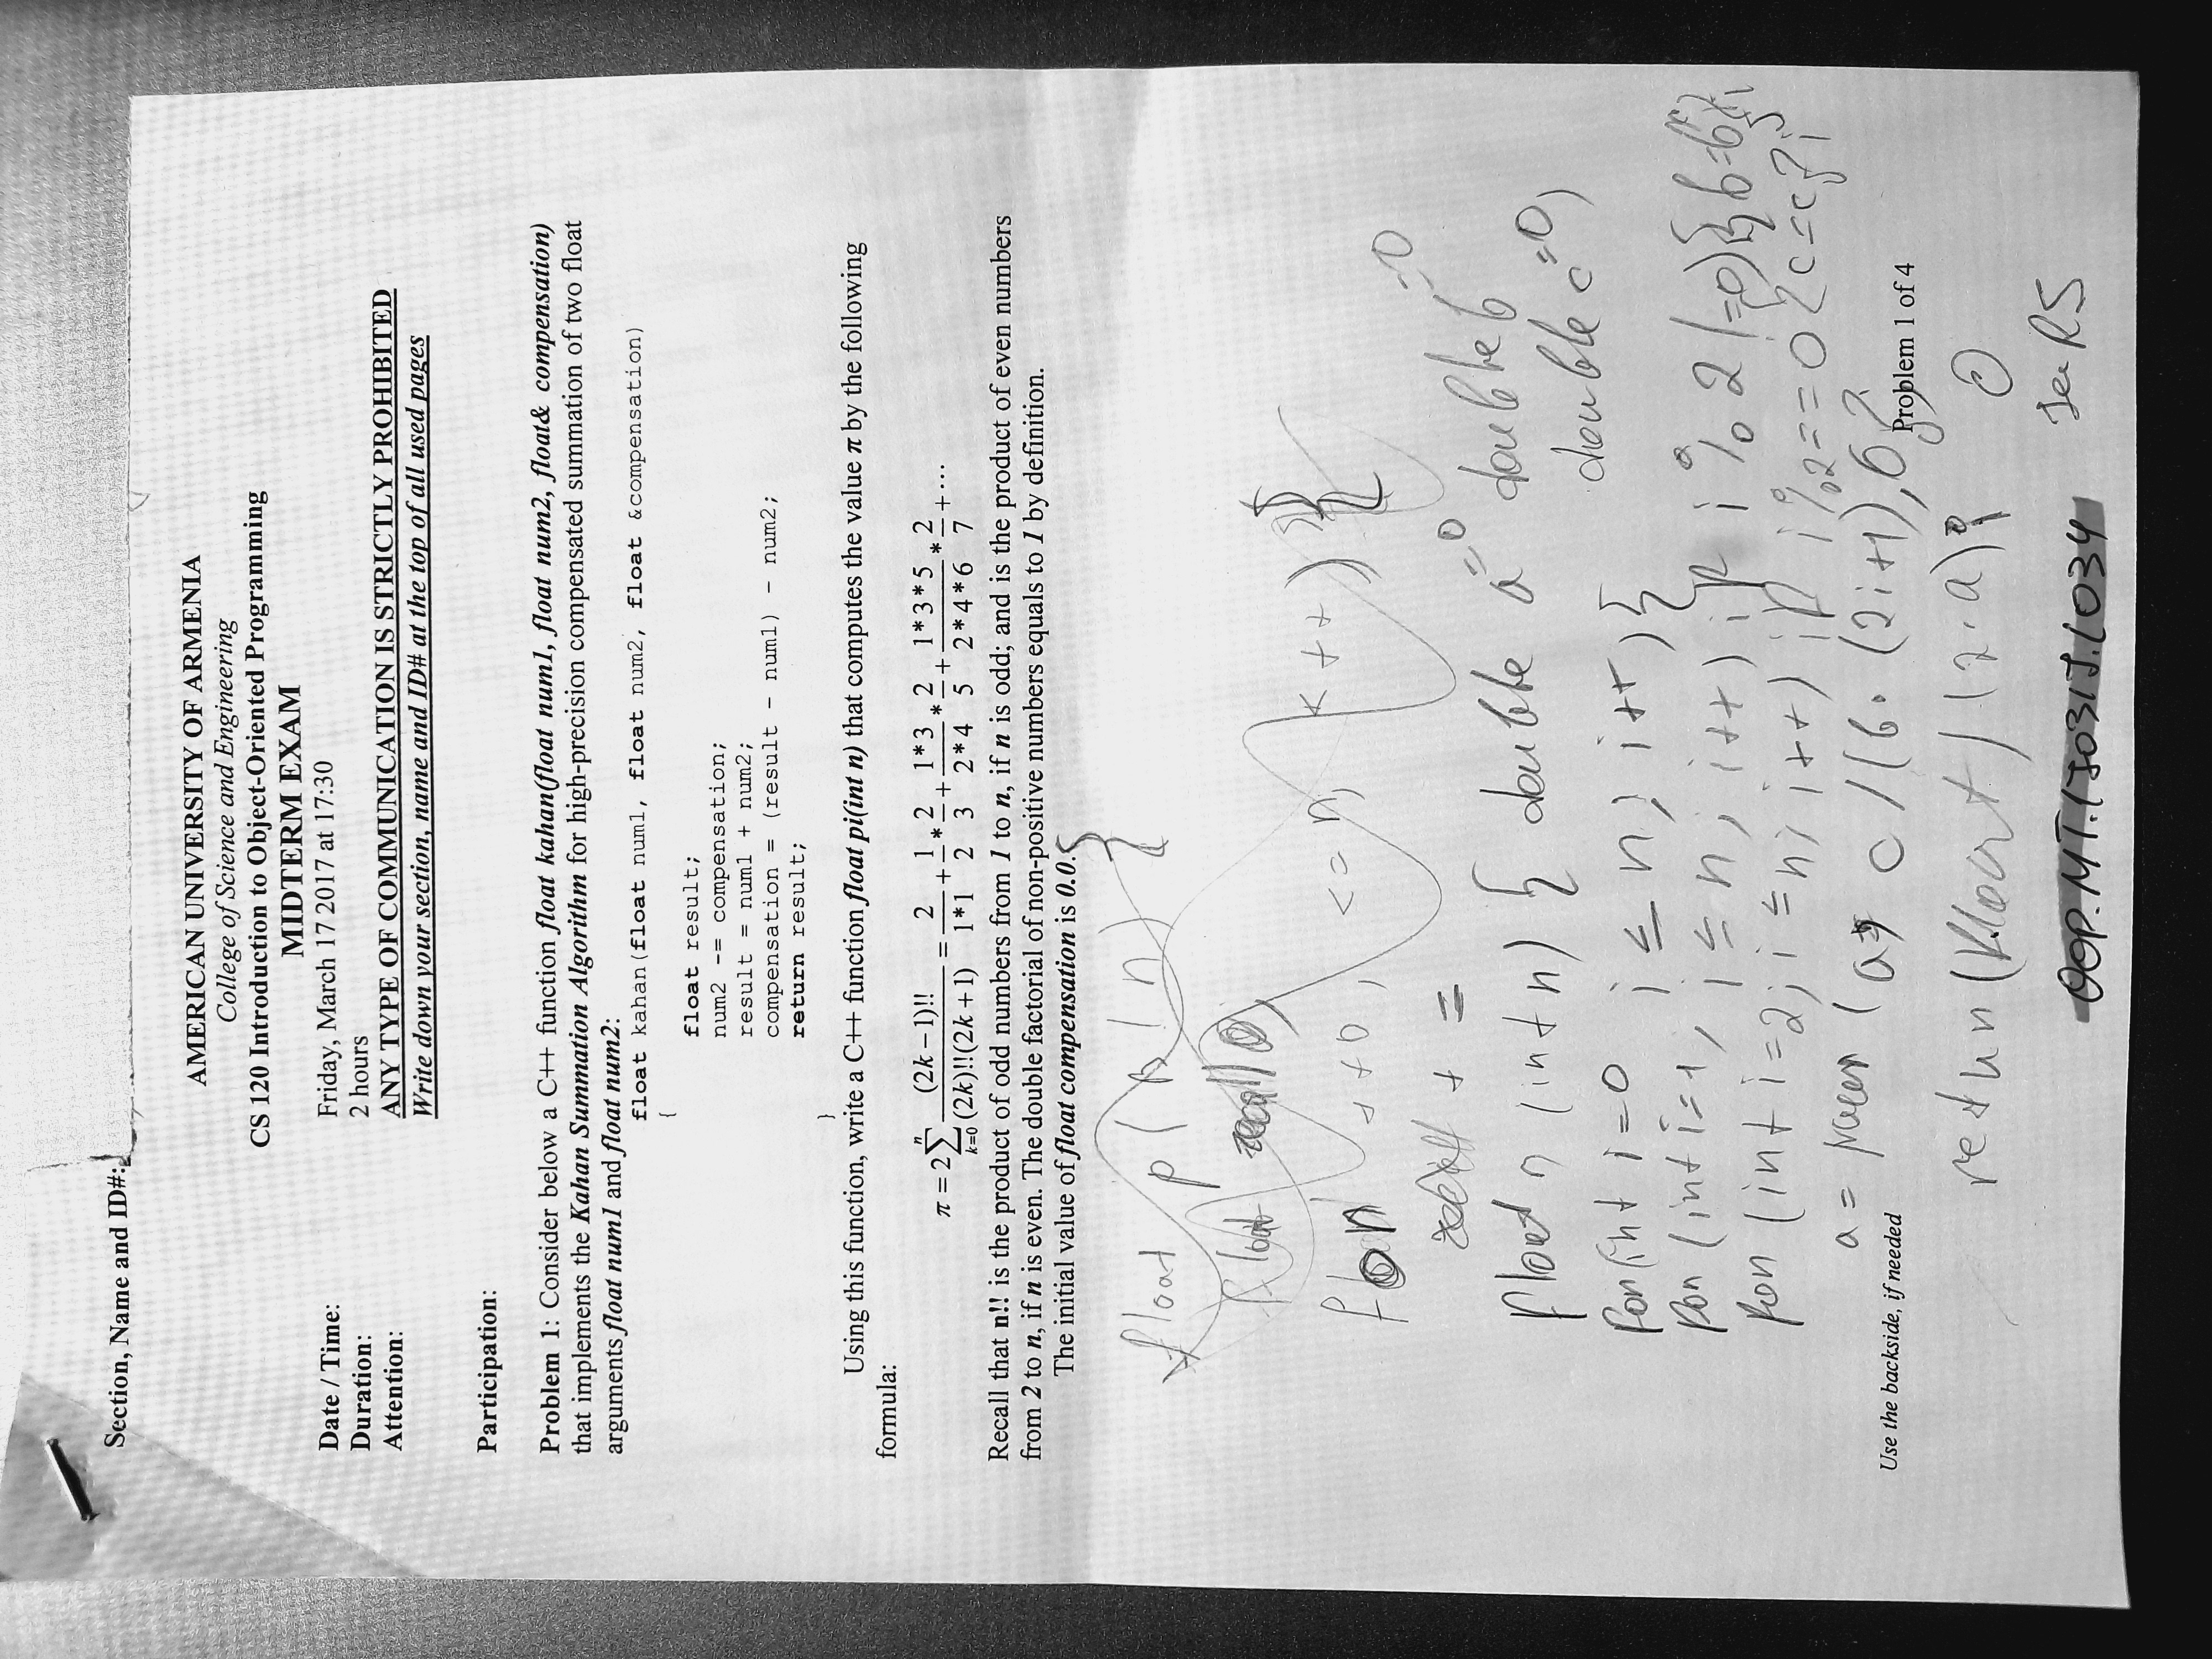 Section, Name and ID#:
AMERICAN UNIVERSITY OF ARMENIA
College of Science and Engineering
CS 120 Introduction to Object-Oriented Programming
MIDTERM EXAM
Date / Time: Friday, March 17 2017 at 17:30
Duration: 2 hours
Attention: ANY TYPE OF COMMUNICATION IS STRICTLY PROHIBITED
Write down your section, name and ID# at the top of all used pages
Participation:
Problem 1: Consider below a C++ function float kahan(float num1, float num2, float& compensation)
that implements the Kahan Summation Algorithm for high-precision compensated summation of two float
arguments float num1 and float num2:
float kahan(float num1, float num2, float &compensation)
{
float result;
num2 -= compensation;
result = num1 + num2;
compensation = (result - num1) - num2;
return result;
}
Using this function, write a C++ function float pi(int n) that computes the value π by the following
formula:
π = 2 ∑ k=0 n (2k – 1)!! / (2k)!!(2k + 1) = 2 / 1*1 + 1/2 * 2/3 + 1*3 / 2*4 * 2/5 + 1*3*5 / 2*4*6 * 2/7 + ···
Recall that n!! is the product of odd numbers from 1 to n, if n is odd; and is the product of even numbers
from 2 to n, if n is even. The double factorial of non-positive numbers equals to 1 by definition.
The initial value of float compensation is 0.0.
float p ( n) {
float
<= n, k++) {
+ =
float (int n) { double a=0 double b=0
double c=0;
for(int i=0 i ≤ n; i++){
for (int i=1; i ≤ n; i++) if i % 2 !=0){ b=b
for (int i=2; i ≤ n; i++) if i%2==0 {c=c
a = ( a c /(b. (2i+1),
Use the backside, if needed
Problem 1 of 4
return (float) (2.a);
0
RS
OOP.MT.170317.1034